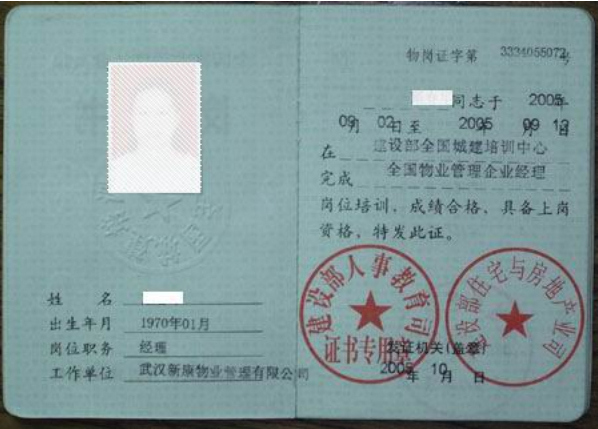 姓 名
出生年月 1970年01月
岗位职务 经理
工作单位 武汉新康物业管理有限公司
物岗证字第 3334055072号
同志于 2005年
09月 02日至 2005年 09月 12日
在 建设部全国城建培训中心
完成 全国物业管理企业经理
岗位培训，成绩合格、具备上岗
资格，特发此证。
建设部人事教育司
证书专用章
建设部住宅与房地产业司
发证机关(盖章)
2005年 10月 日